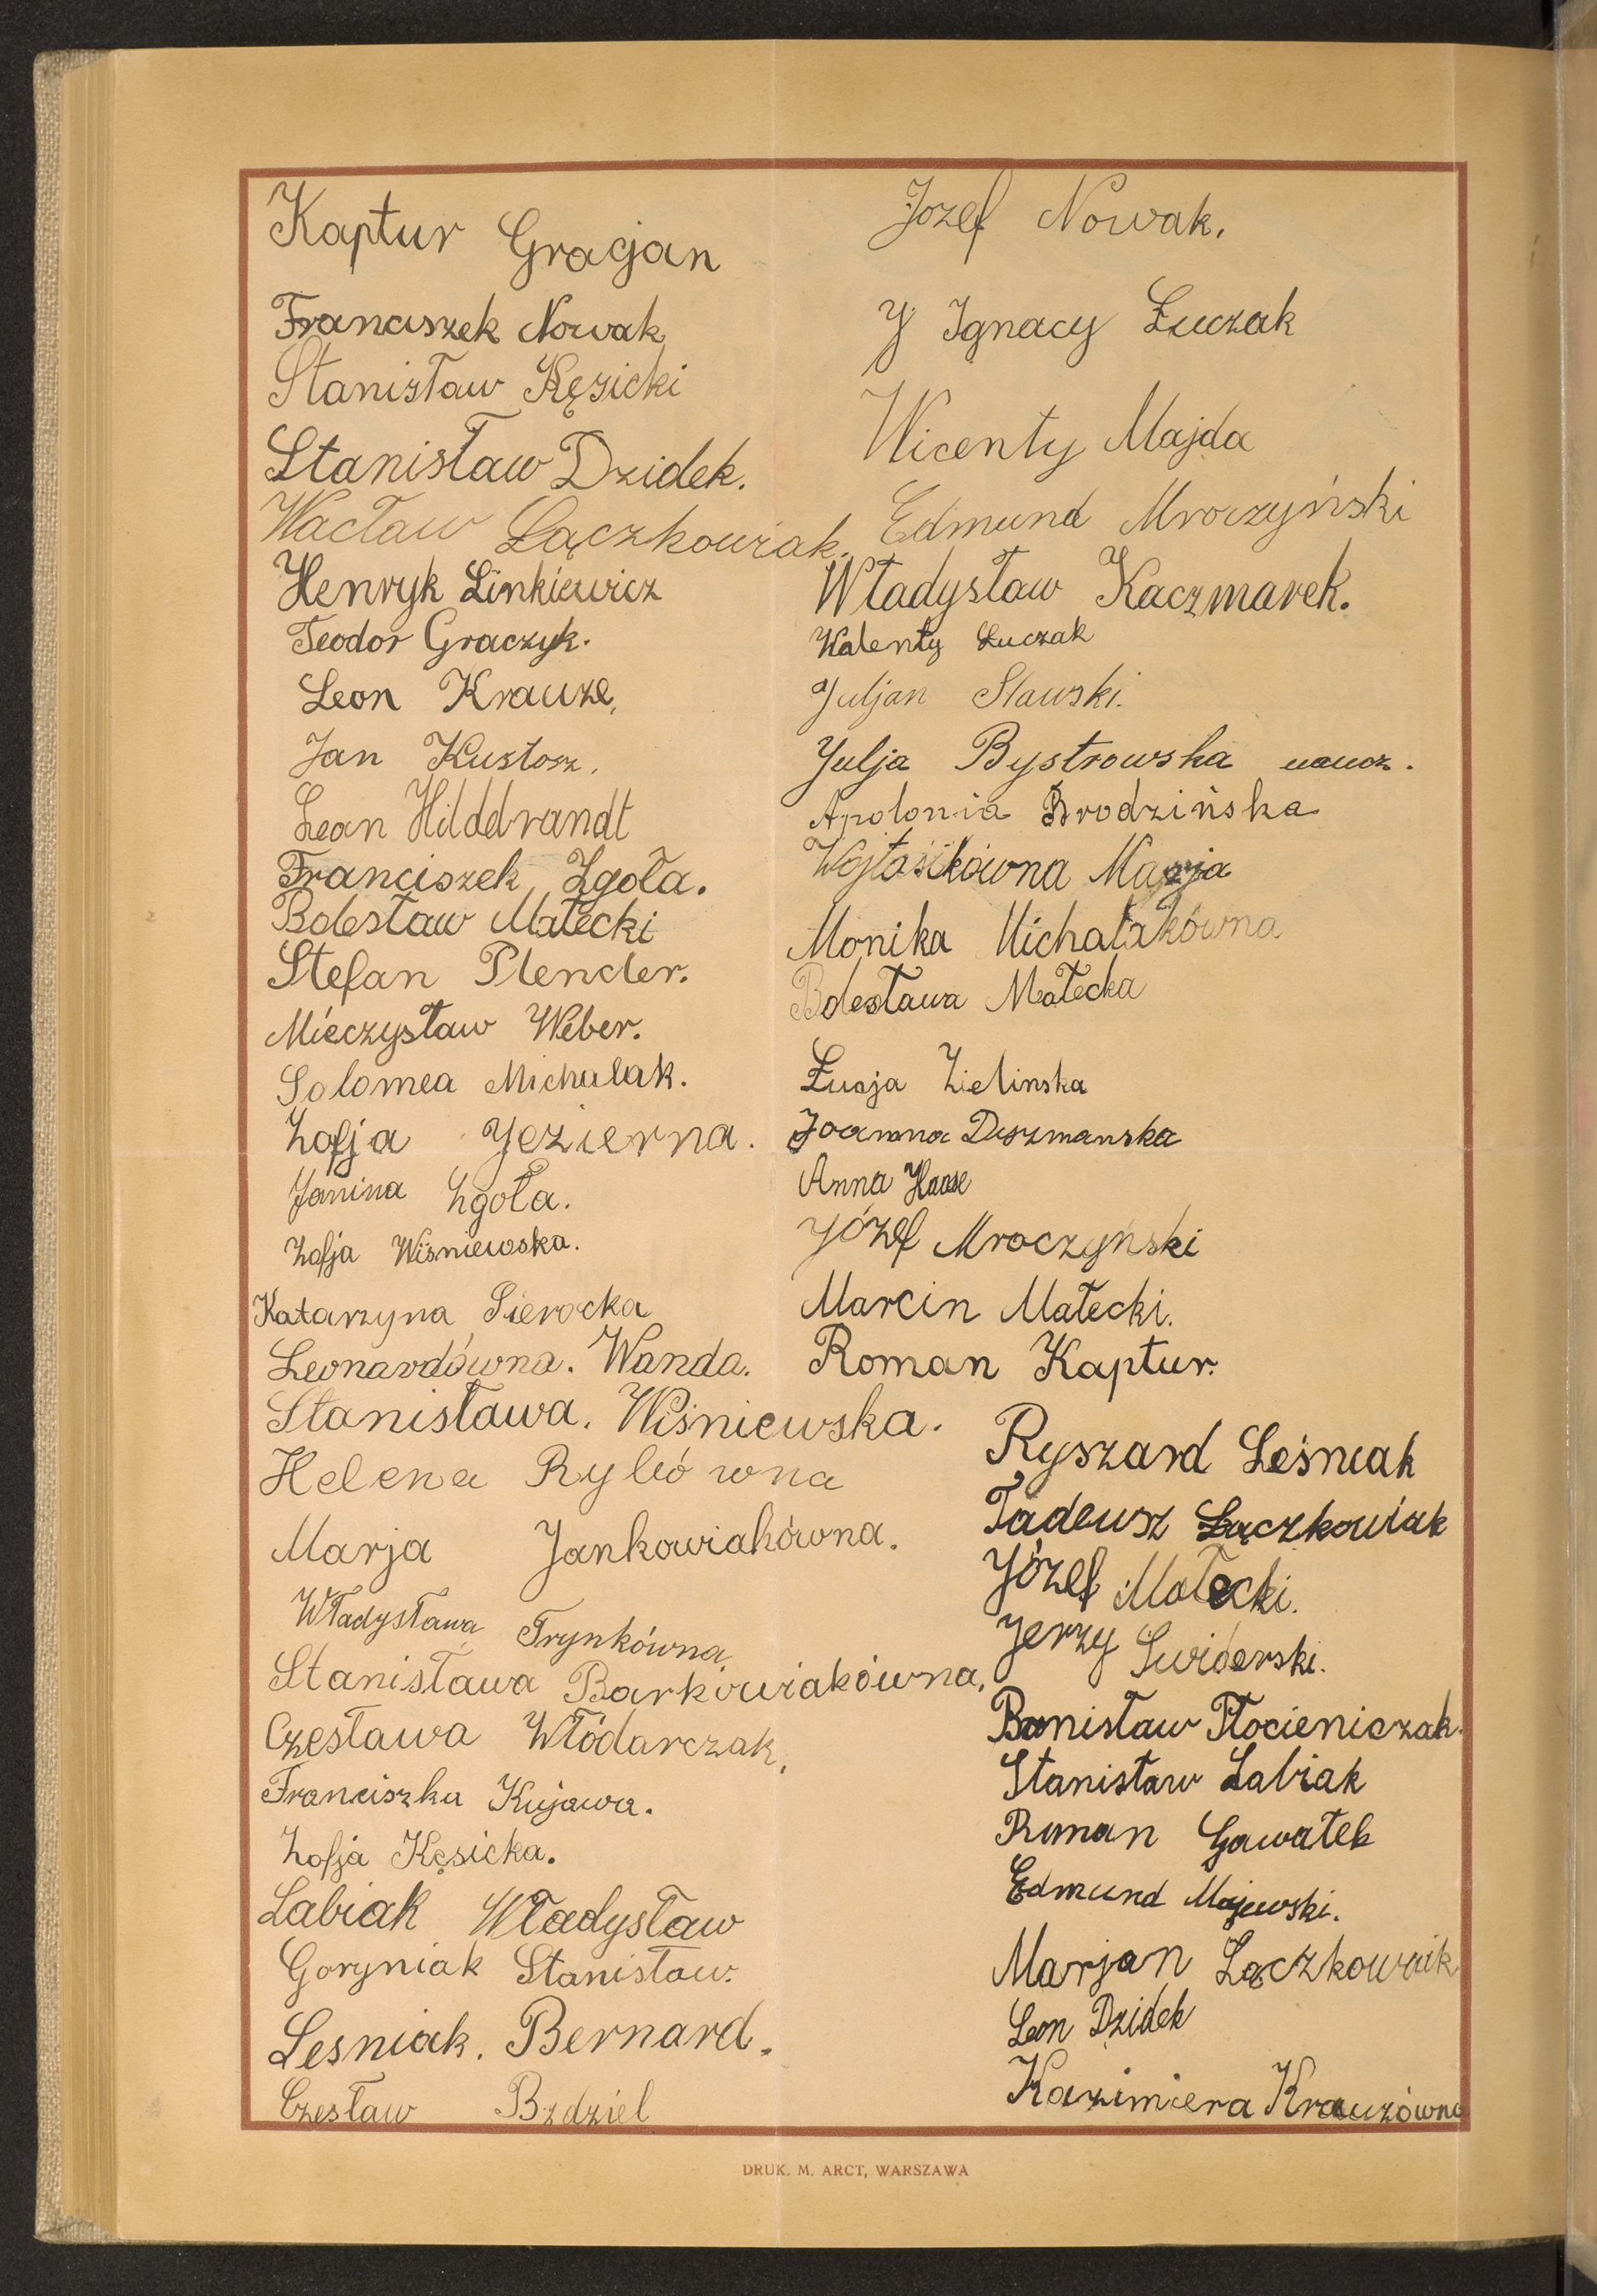 Kaptur Gracjan
Franciszek Nowak
Stanisław Kęsicki
Stanisław Dzidek.
Wacław Łączkowiak.
Henryk Linkiewicz
Teodor Graczyk.
Leon Krauze,
Jan Kustosz.
Leon Hildebrandt
Franciszek Zgoła.
Bolesław Małecki
Stefan Plencler.
Mieczysław Weber.
Solomea Michalak.
Zofja Jezierna.
Janina Zgoła.
Zofja Wiśniewska.
Katarzyna Sierocka
Leonardówna. Wanda.
Stanisława. Wiśniewska.
Helena Rylówna
Marja Jankowiakówna.
Władysława Frynkówna,
Stanisława Barkowiakówna,
Czesława Włódarczak,
Franciszka Kujawa.
Zofja Kęsicka.
Labiak Władysław
Goryniak Stanisław.
Lesniak. Bernard.
Czesław Bzdziel
Jozef Nowak.
J Ignacy Łuczak
Wicenty Majda
Edmund Mroczyński
Władysław Kaczmarek.
Walenty Łuczak
Juljan Slawski.
Julja Bystrowska naucz.
Apolonia Brodzińska
Wojtasikówna Marja
Monika Michalakówna
Bolesława Małecka
Łucja Zielinska
Joanna Duszmanska
Anna Haase
Józef Mroczyński
Marcin Małecki.
Roman Kaptur.
Ryszard Leśniak
Tadeusz Łączkowiak
Józef Małecki.
Jerzy Swiderski.
Bronisław Płocieniczak.
Stanisław Labiak
Roman Gawałek
Edmund Majewski.
Marjan Łączkowaik
Leon Dzidek
Kazimiera Krauzówna
DRUK. M. ARCT, WARSZAWA